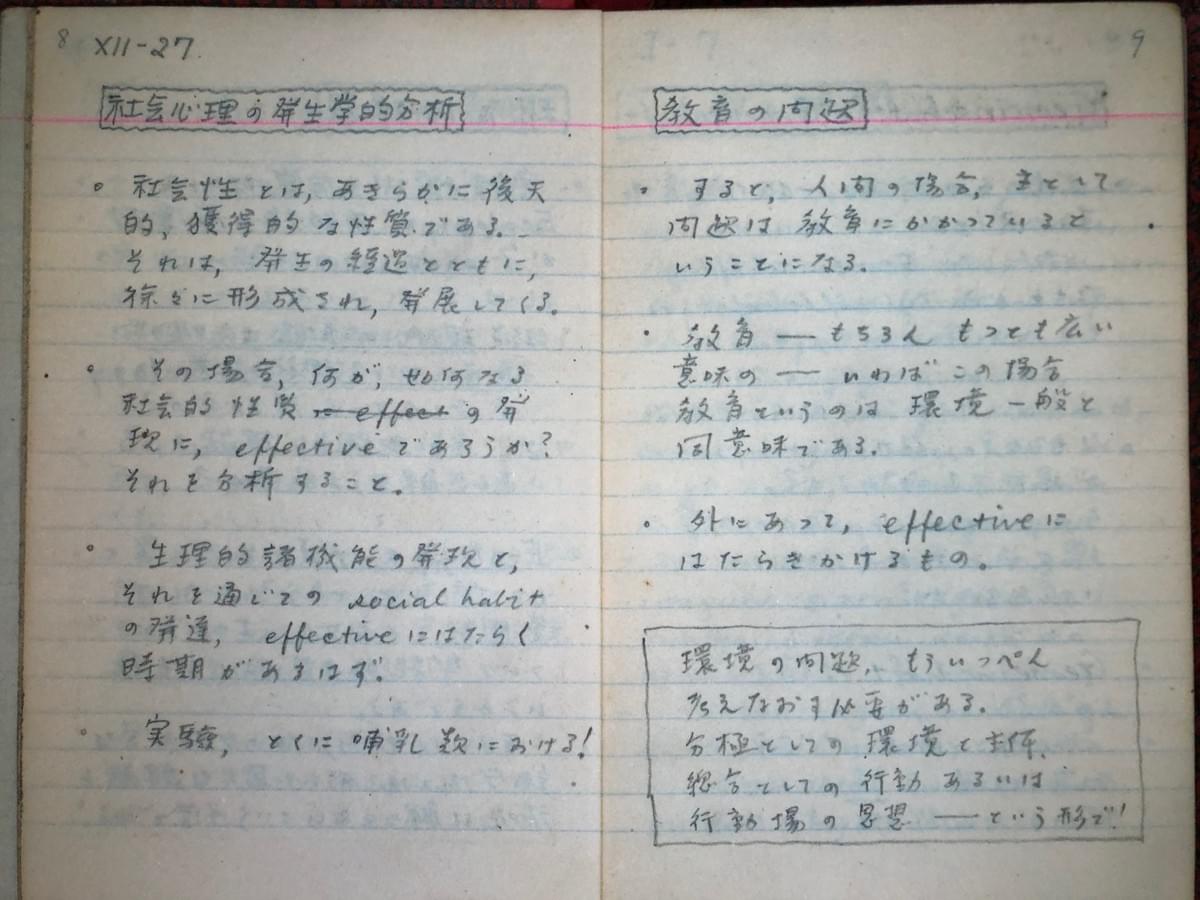 8 XII-27.
社会心理の発生学的分析
。社会性とは、あきらかに後天
的、獲得的な性質である。
それは、発生の経過とともに、
徐々に形成され、発展してくる。
。その場合、何が、如何なる
社会的性質 effect の発
現に、effectiveであろうか?
それを分析すること。
。生理的諸機能の発現と、
それを通じての social habit
の発達、effectiveにはたらく
時期があるはず。
。実験、とくに哺乳類における!
9
教育の問題
。すると、人間の場合、主として
問題は教育にかかっていると
いうことになる。
・教育 — もちろん もっとも広い
意味の — いわばこの場合
教育というのは環境一般と
同意味である。
・外にあって、effectiveに
はたらきかけるもの。
環境の問題、もういっぺん
考えなおす必要がある。
分極としての環境と主体、
総合としての行動あるいは
行動場の思想 — という形で!